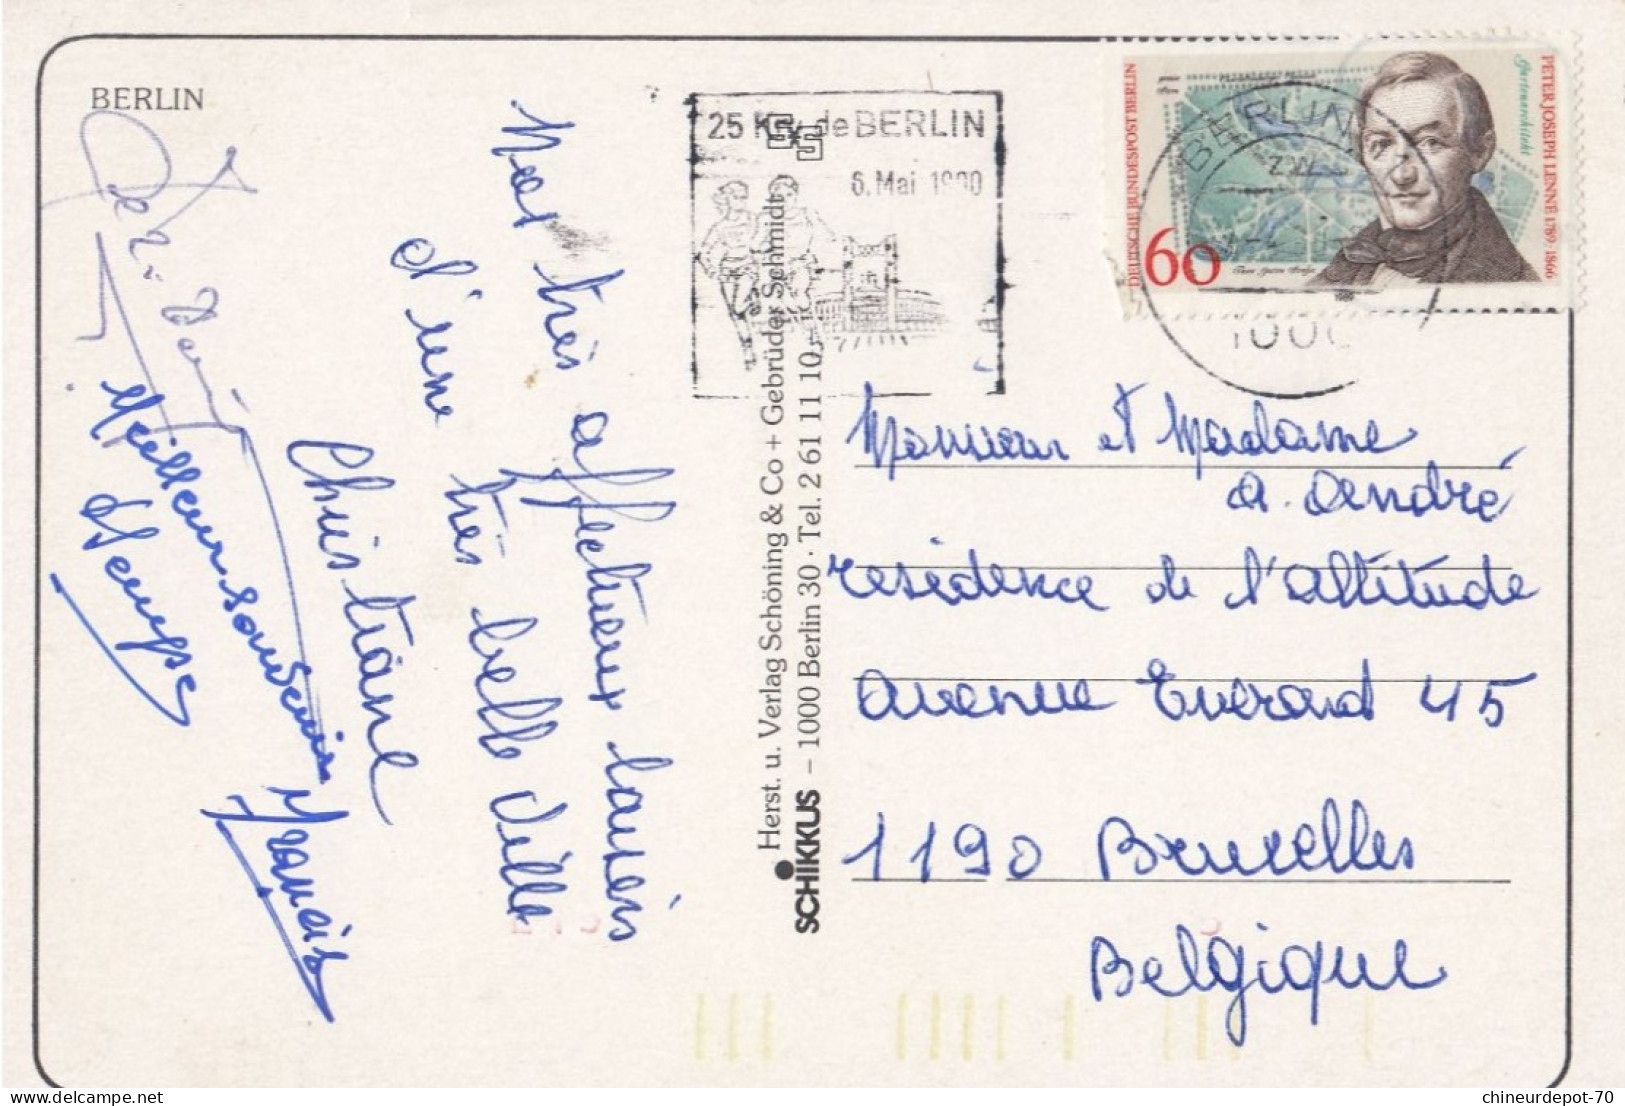 BERLIN
Nos très affectueux baisers
d'une très belle ville
Christiane
Meilleur souvenir
Francis
25 Km de BERLIN
6. Mai 1990
Herst. u. Verlag Schöning & Co + Gebrüder Schmidt
SCHIKKUS – 1000 Berlin 30 · Tel. 2 61 11 10
DEUTSCHE BUNDESPOST BERLIN
60
PETER JOSEPH LENNÉ 1789-1866
Gartenarchitekt
BERLIN
1000
Monsieur et Madame
A. André
résidence de l'altitude
Avenue Everard 45
1190 Bruxelles
Belgique
chineurdepot-70